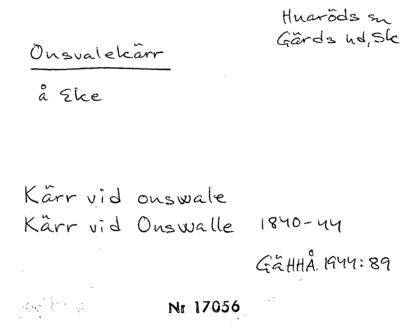 Huaröds sn
Gärds hd, Sk
Onsvalekärr
å Eke
Kärr vid onswale
Kärr vid Onswalle 1840-44
GäHHÅ 1944:89
Nr 17056